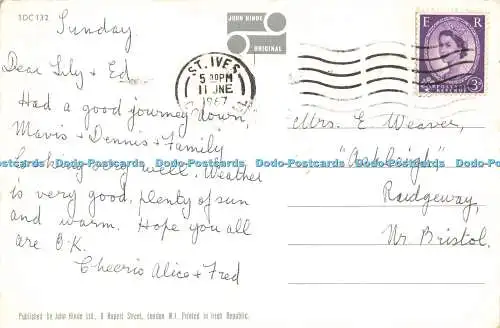 1DC132
Sunday
JOHN HINDE
ORIGINAL
ST. IVES
5 00PM
11 JNE
1967
E R
3D
POSTAGE REVENUE
Dear Lily & Ed
Had a good journey down,
Mavis & Dennis & Family
Looking very well. Weather
is very good, plenty of sun
and warm. Hope you all
are O.K.
Cheerio Alice & Fred
Mrs. E. Weaver,
Raidgeway,
Nr. Bristol.
Dodo-Postcards Dodo-Postcards Dodo-Postcards Dodo-Postcards Dodo-Postcards
Published by John Hinde Ltd., 8 Rupert Street, London W.1. Printed in Irish Republic.